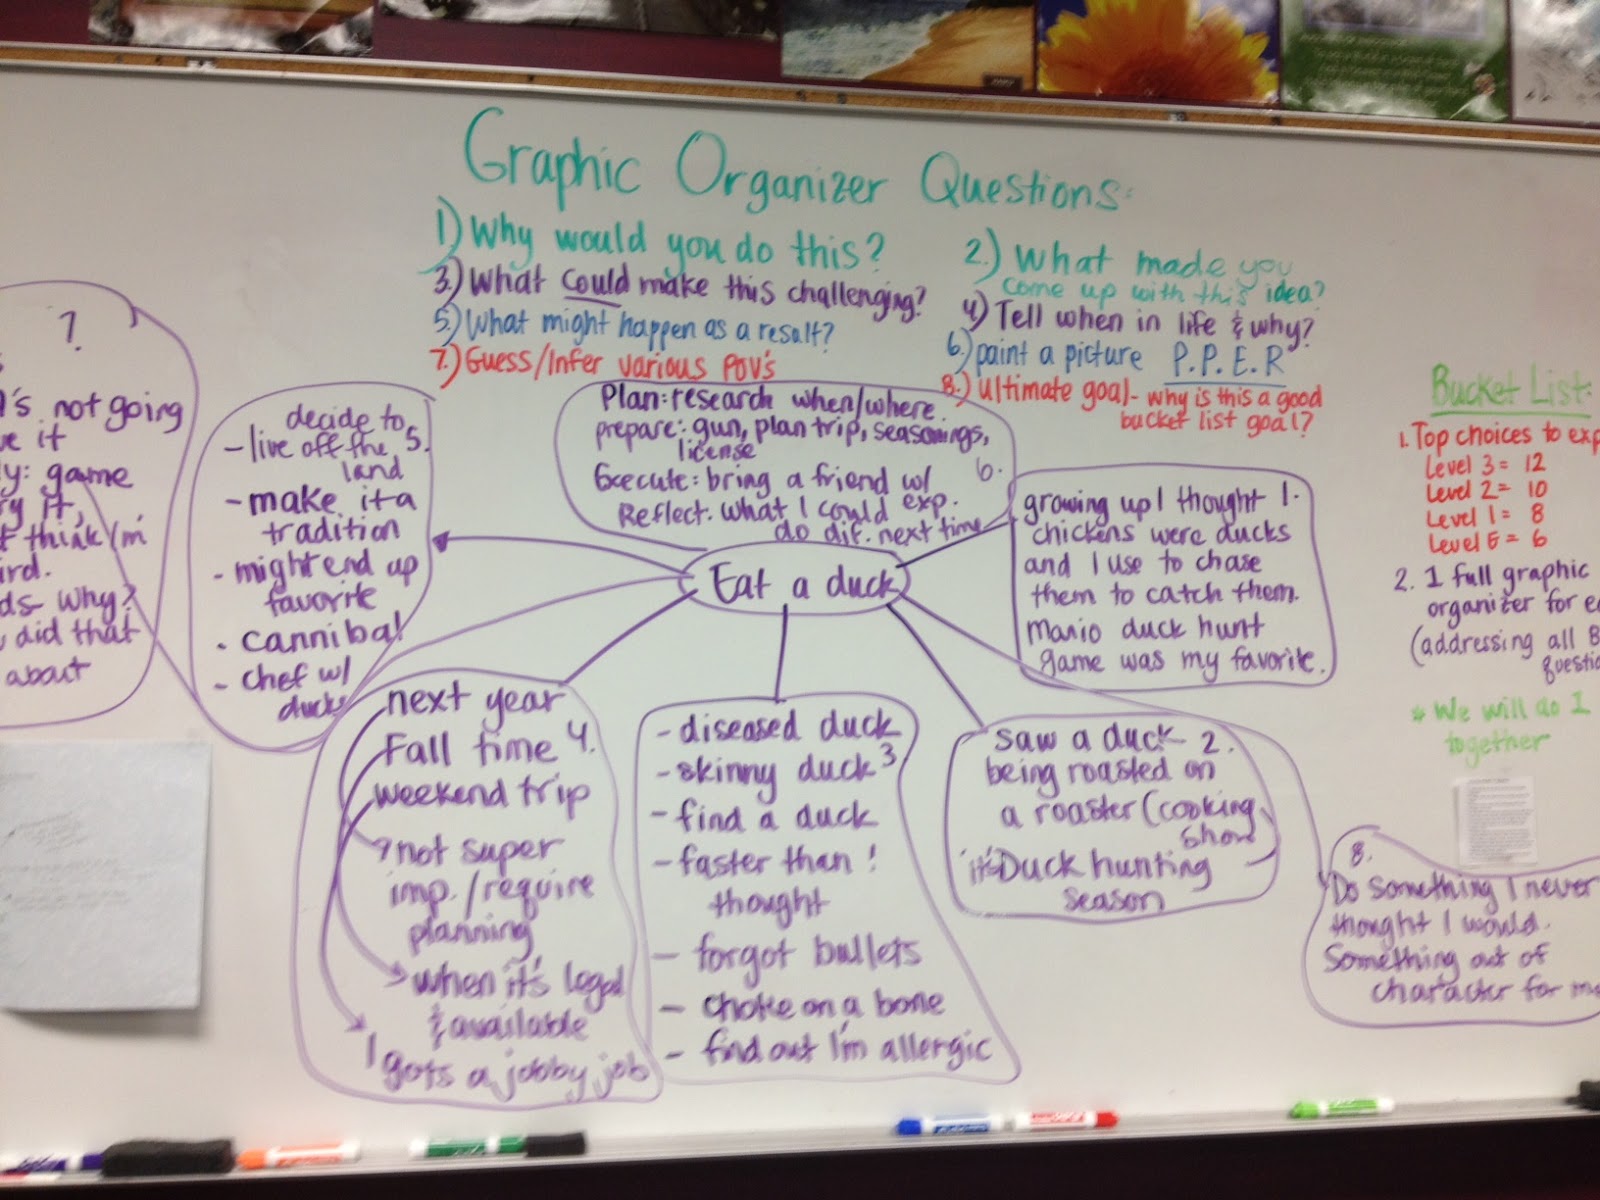 Graphic Organizer Questions:
1.) Why would you do this?
2.) What made you
come up with this idea?
3.) What could make this challenging?
4.) Tell when in life & why?
5.) What might happen as a result?
6.) paint a picture P.P.E.R
7.) Guess/Infer various POV's
8.) ultimate goal- why is this a good
bucket list goal?
7.
's not going
it
y: game
it,
think I'm
why?
did that
about
decide to
- live off the 5.
land
- make it a
tradition
- might end up
favorite
- cannibal
- chef w/
ducks
Plan: research when/where
prepare: gun, plan trip, seasonings,
license
6.
Execute: bring a friend w/
exp.
Reflect: what I could
do dif. next time
Eat a duck
growing up I thought 1.
chickens were ducks
and I use to chase
them to catch them.
mario duck hunt
game was my favorite.
next year
Fall time 4.
weekend trip
not super
imp./require
planning
when it's legal
& available
I gots a jobby job
- diseased duck
- skinny duck 3
- find a duck
- faster than I
thought
- forgot bullets
- choke on a bone
- find out I'm allergic
saw a duck 2.
being roasted on
a roaster (cooking
show
it's Duck hunting
season
8.
Do something I never
thought I would.
Something out of
character for me
Bucket List:
1. Top choices to exp
Level 3 = 12
Level 2 = 10
Level 1 = 8
Level E = 6
2. 1 full graphic
organizer for
(addressing all 8
* We will do 1
together